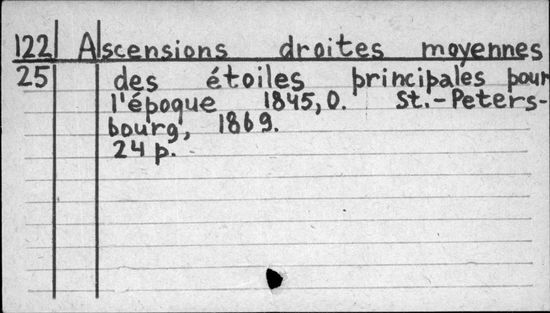 122 Ascensions droites moyennes
25 des étoiles principales pour
l'époque 1845,0. St.-Peters-
bourg, 1869.
24 p.